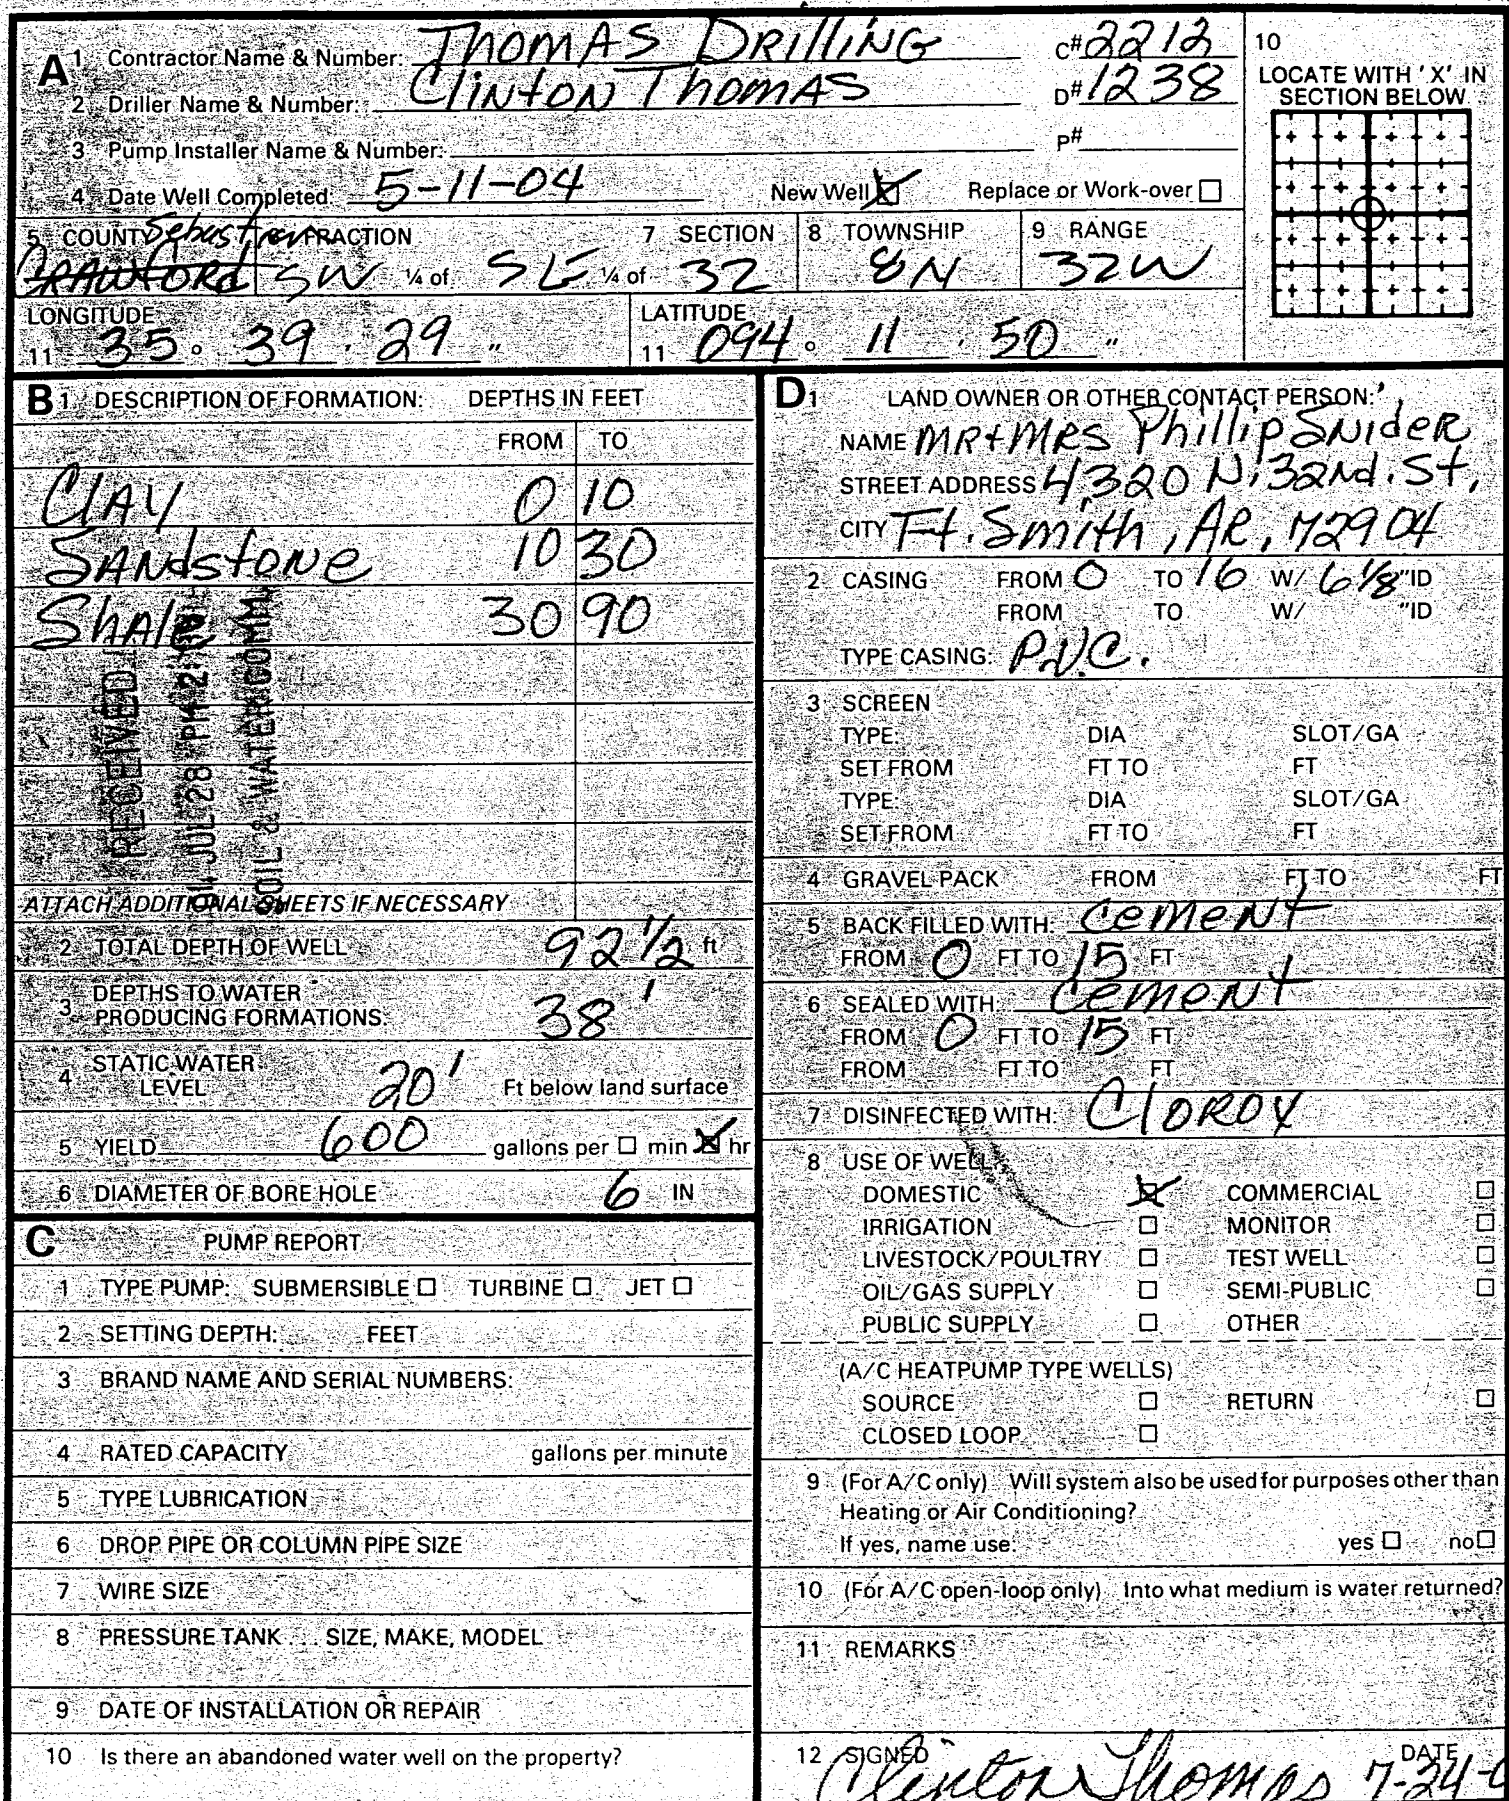 A 1 Contractor Name & Number: Thomas Drilling C# 2212
2 Driller Name & Number: Clinton Thomas D# 1238
3 Pump Installer Name & Number: P#
4 Date Well Completed: 5-11-04 New Well ☒ Replace or Work-over ☐
10
LOCATE WITH 'X' IN
SECTION BELOW
5 COUNTY Sebastian FRACTION 7 SECTION 8 TOWNSHIP 9 RANGE
CRAWFORD SW ¼ of SE ¼ of 32 8N 32W
LONGITUDE LATITUDE
11 35 ° 39 ' 29 " 11 094 ° 11 ' 50 "
B 1 DESCRIPTION OF FORMATION: DEPTHS IN FEET
FROM TO
CLAY 0 10
SANDSTONE 10 30
Shale 30 90
RECEIVED
04 JUL 28 PM 2:
SOIL & WATER COMM
ATTACH ADDITIONAL SHEETS IF NECESSARY
2 TOTAL DEPTH OF WELL 92 1/2 ft
3 DEPTHS TO WATER
PRODUCING FORMATIONS: 38'
4 STATIC WATER
LEVEL 20' Ft below land surface
5 YIELD 600 gallons per ☐ min ☒ hr
6 DIAMETER OF BORE HOLE 6 IN
C PUMP REPORT
1 TYPE PUMP: SUBMERSIBLE ☐ TURBINE ☐ JET ☐
2 SETTING DEPTH: FEET
3 BRAND NAME AND SERIAL NUMBERS:
4 RATED CAPACITY gallons per minute
5 TYPE LUBRICATION
6 DROP PIPE OR COLUMN PIPE SIZE
7 WIRE SIZE
8 PRESSURE TANK . . . SIZE, MAKE, MODEL
9 DATE OF INSTALLATION OR REPAIR
10 Is there an abandoned water well on the property?
D 1 LAND OWNER OR OTHER CONTACT PERSON:
NAME MR + MRS Phillip Snider
STREET ADDRESS 4320 N. 32nd. St,
CITY Ft. Smith, AR, 72904
2 CASING FROM 0 TO 16 W/ 6 1/8 "ID
FROM TO W/ "ID
TYPE CASING: P.V.C.
3 SCREEN
TYPE: DIA SLOT/GA
SET FROM FT TO FT
TYPE: DIA SLOT/GA
SET FROM FT TO FT
4 GRAVEL PACK FROM FT TO FT
5 BACK FILLED WITH: Cement
FROM 0 FT TO 15 FT
6 SEALED WITH: Cement
FROM 0 FT TO 15 FT
FROM FT TO FT
7 DISINFECTED WITH: Clorox
8 USE OF WELL
DOMESTIC ☒ COMMERCIAL ☐
IRRIGATION ☐ MONITOR ☐
LIVESTOCK/POULTRY ☐ TEST WELL ☐
OIL/GAS SUPPLY ☐ SEMI-PUBLIC ☐
PUBLIC SUPPLY ☐ OTHER
(A/C HEATPUMP TYPE WELLS)
SOURCE ☐ RETURN ☐
CLOSED LOOP ☐
9 (For A/C only) Will system also be used for purposes other than
Heating or Air Conditioning?
If yes, name use: yes ☐ no ☐
10 (For A/C open-loop only) Into what medium is water returned?
11 REMARKS
12 SIGNED Clinton Thomas DATE 7-24-0